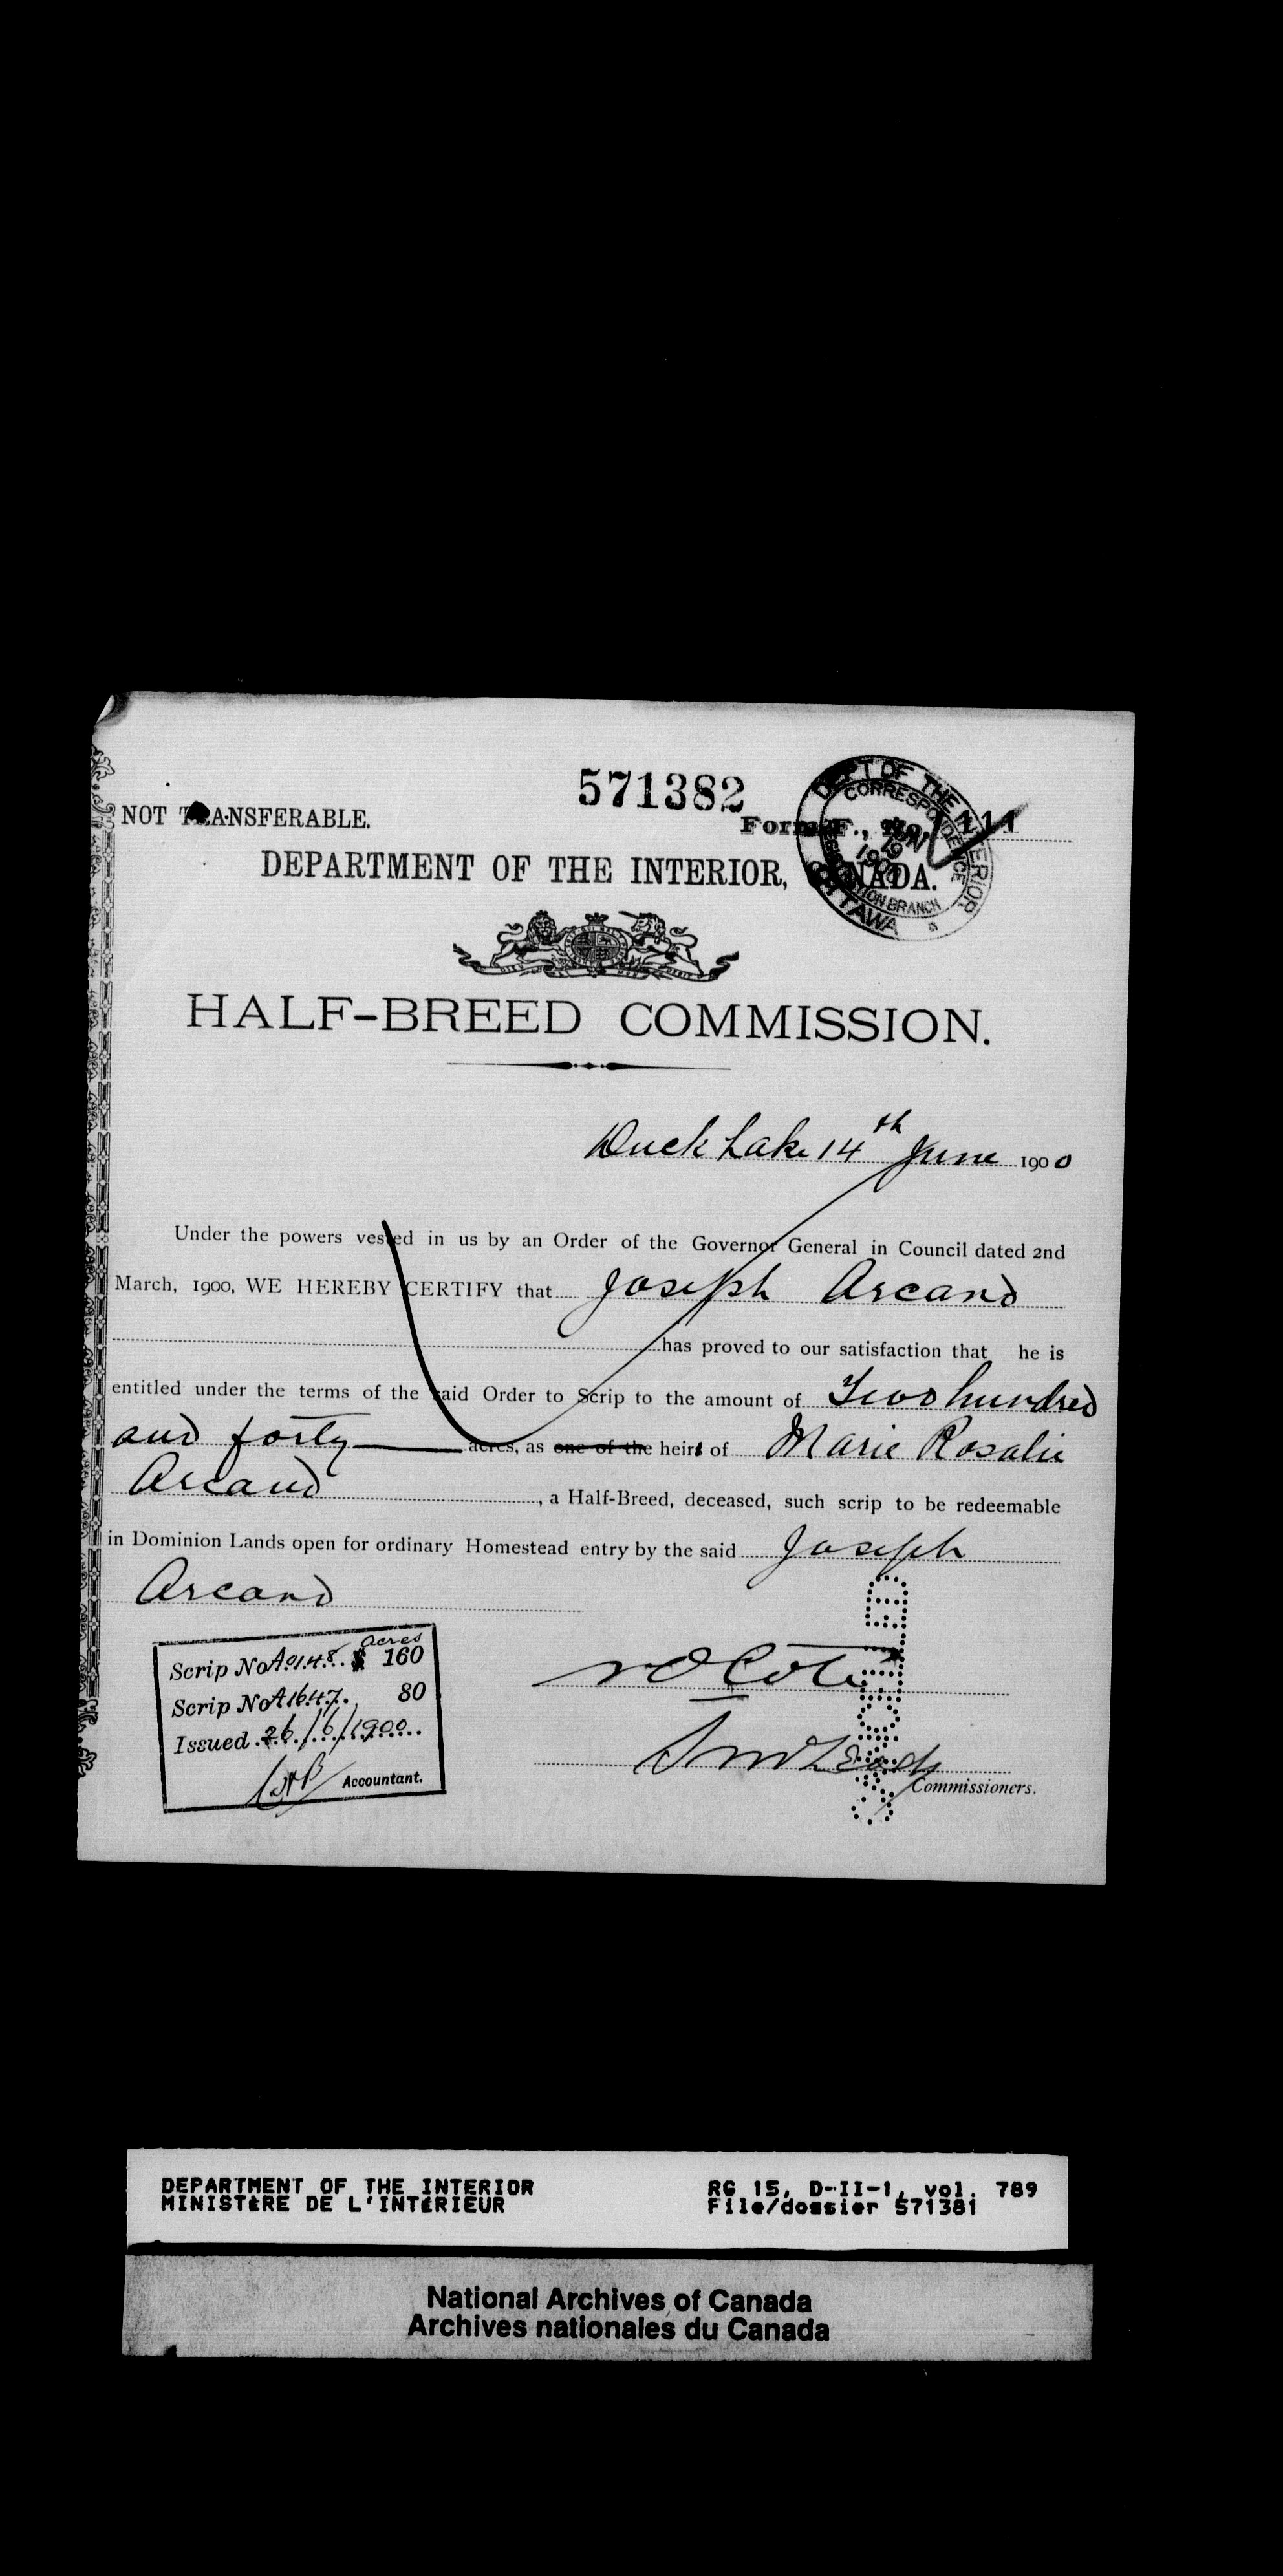 571382
NOT TRANSFERABLE.
Form F., No. 111
DEPT OF THE INTERIOR
CORRESPONDENCE
JUN 19 1900
REGISTRATION BRANCH
OTTAWA
DEPARTMENT OF THE INTERIOR, CANADA.
HALF-BREED COMMISSION.
Duck Lake 14th June 1900
Under the powers vested in us by an Order of the Governor General in Council dated 2nd
March, 1900, WE HEREBY CERTIFY that Joseph Arcand
has proved to our satisfaction that he is
entitled under the terms of the said Order to Scrip to the amount of Two hundred
and forty acres, as one of the heirs of Marie Rosalie
Arcand, a Half-Breed, deceased, such scrip to be redeemable
in Dominion Lands open for ordinary Homestead entry by the said Joseph
Arcand
acres
Scrip No A 9148 $ 160
Scrip No A 1647 80
Issued 26/6/1900
Accountant.
Commissioners.
DEPARTMENT OF THE INTERIOR
MINISTÈRE DE L'INTÉRIEUR
RG 15, D-II-1, vol. 789
File/dossier 571381
National Archives of Canada
Archives nationales du Canada